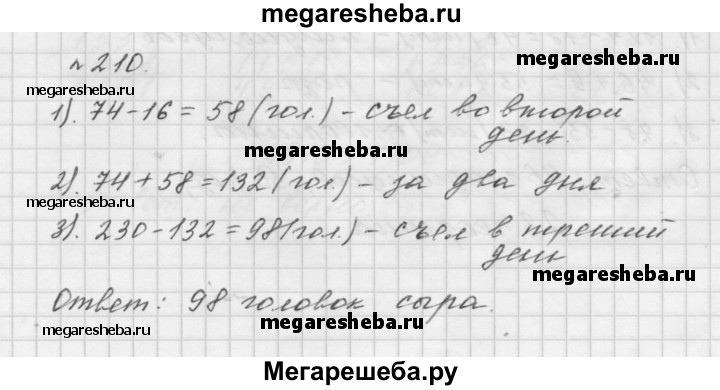 megaresheba.ru
№210.
megaresheba.ru
megaresheba.ru
1). 74-16 = 58 (гол.) - съел во второй
день.
megaresheba.ru
2). 74+58=132 (гол.) - за два дня
megaresheba.ru
3). 230-132=98(гол.) - съел в третий
день
megaresheba.ru
Ответ: 98 головок сыра.
megaresheba.ru
megaresheba.ru
Мегарешеба.ру